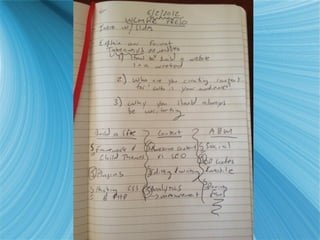 5/2/2012
WCMKE PREZO
- Intro w/ Slides
- Explain our format
1) How to build a website in a weekend
2) Who are you creating content for? Who is your audience?
3) Why you should always be marketing
Build a Site
Content
ABM
Framework &
Child Themes
Awesome Content
vs SEO
Social
QR Codes
Plugins
Editing & writing
Mobile
Hacking CSS
& PHP
Analytics
measurement